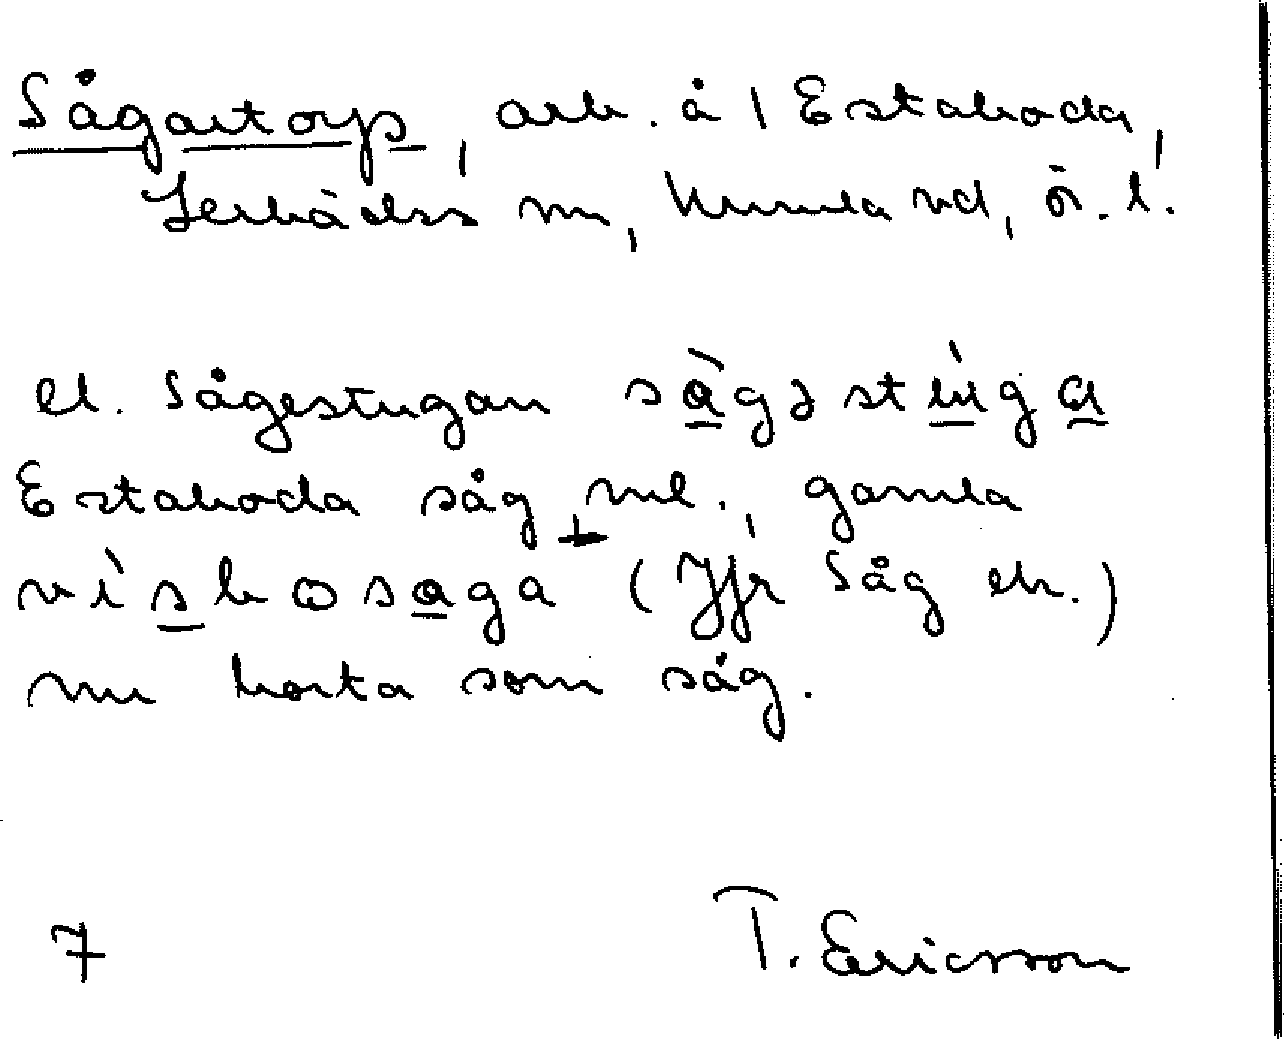 Sågartorp, arb. å 1 Estaboda,
Lerbäcks sn, Kumla hd, ö. l.
el. Sågestugan sågəstuga
Estaboda såg, nml., gamla
visbosaga (Jfr Såg etc.)
nu borta som såg.
7 T. Ericsson